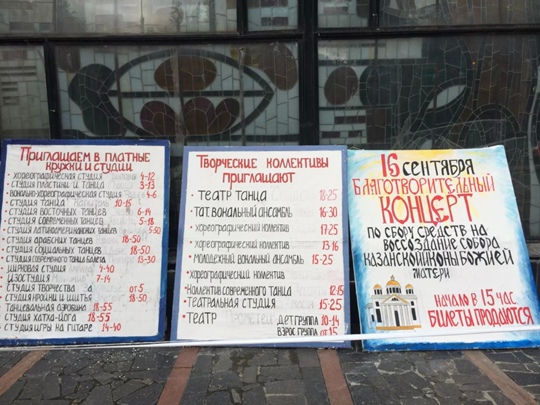 Приглашаем в платные
кружки и студии
• хореографическая студия 4-12
• студия пластики и танца 3-13
• вокально-хореографическая студия 4-6
• студия танца 10-15
• студия восточных танцев 6-14
• студия современного танца 5-18
• студия латиноамериканских танцев
• студия арабских танцев 18-50
• студия социальных танцев 18-50
• студия современного танца 13-30
• цирковая студия 4-40
• изостудия 7-14
• студия творчества от 5
• студия кройки и шитья 18-50
• танцевальная аэробика 18-55
• студия хатха-йога 18-55
студия игры на гитаре 14-40
Творческие коллективы
приглашают
• театр танца 18-25
• тат. вокальный ансамбль 16-30
• хореографический коллектив 17-25
• хореографический коллектив 13-16
• молодежный вокальный ансамбль 15-25
• хореографический коллектив
• коллектив современного танца 12-15
• театральная студия 15-25
• театр дет.группа 10-14
взрос группа от 15
16 сентября
благотворительный
концерт
по сбору средств на
воссоздание собора
казанской иконы божией
матери
начало в 15 час
билеты продаются